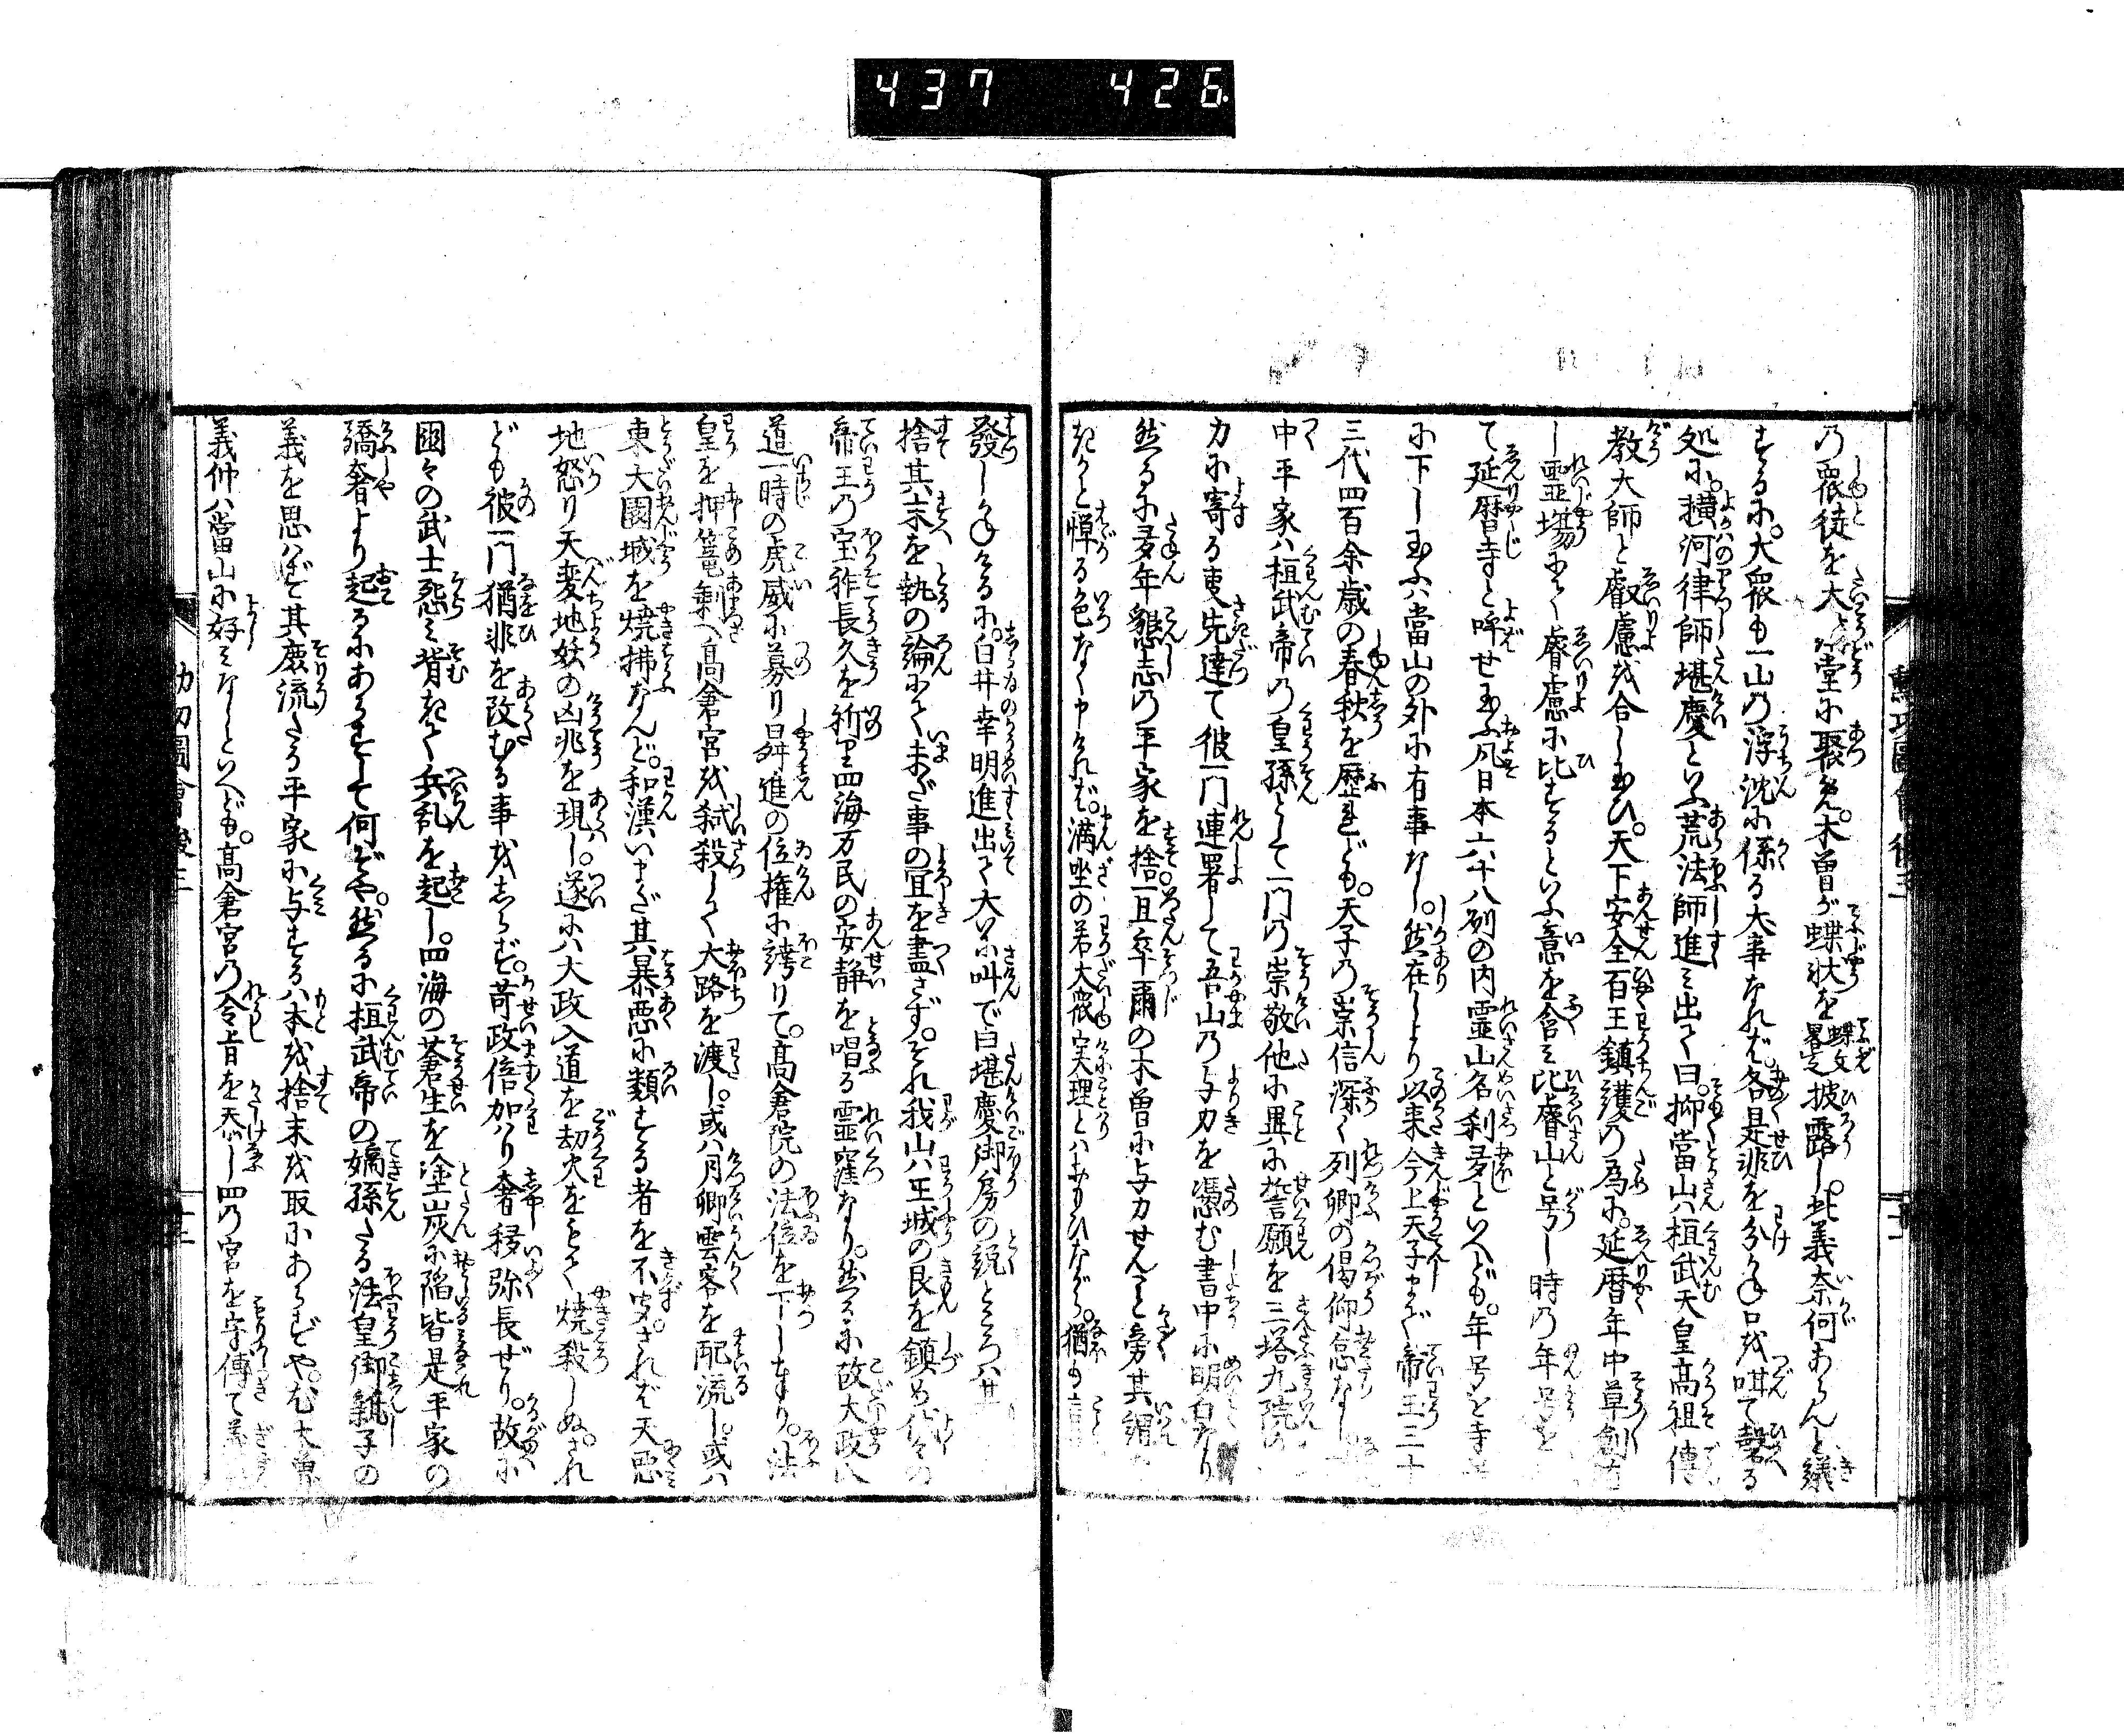 437 426
乃衆徒を大講堂に聚め。木曽が蝶状を蝶文畧之披露し。此義奈何あらんと議
するに。大衆も一山の浮沈に係る大事なれば各是非を分かね口を咁て磬る
処に。横河律師堪慶といふ荒法師進み出て曰。抑當山ハ桓武天皇高祖傳
教大師と叡慮を合し玉ひ。天下安全百王鎮護の為に。延暦年中草創
し霊場にて叡慮に比するといふ意を含み比睿山と号し時の年号を
て延暦寺と呼せ玉ふ凡日本六十八列の内霊山名刹多といへども。年号を寺
に下し玉ふハ當山の外に有事なし。然在しより以来今上天子まで帝王三十
三代四百余歳の春秋を歴れども。天子の崇信深く列卿の偈仰怠なし。
中平家ハ桓武帝の皇孫として一門の崇敬他に異に誓願を三塔九院の
力に寄る事先達て彼一門連署して吾山の与力を憑む書中に明白なり
然るに多年懇志の平家を捨一旦卒爾の木曽に与力せんこと旁其謂
たらと憚る色なく申ければ。満坐の若大衆実理とハおもひながら。猶も言
發しかねけるに。白井幸明進出て大に叫で曰堪慶御房の説ところハ其
捨其末を執の論にていまだ事の宜を盡さず。それ我山ハ王城の艮を鎮め代々の
帝王の宝祚長久を祈り四海万民の安静を唱る霊窪なり。然るに故大政入
道一時の虎威に募り昇進の位権に誇りて。高倉院の法位を下し奉り。法
皇を押篭剰へ高倉宮を弑殺しく大路を渡し。或ハ月卿雲客を配流し。或ハ
東大園城を焼拂なんど。和漢いまだ其暴悪に類する者を不聞。されば天忿
地怒り天変地妖の凶兆を現し。遂にハ大政入道を劫火をもて焼殺しぬ。され
ども彼一門猶非を改むる事をしらず。苛政倍加ハり奢移弥長ぜり。故に
國々の武士怨み背きて兵乱を起し。四海の蒼生を塗炭に陥皆是平家の
驕奢より起るにあらずして何ぞや。然るに桓武帝の嫡孫たる法皇御親子の
義を思ハで其庶流たる平家に与するハ本を捨末を取にあらずや。尤木曽
義仲ハ當山に好みなしといへども。高倉宮の令旨を忝し四の宮を守傳て義